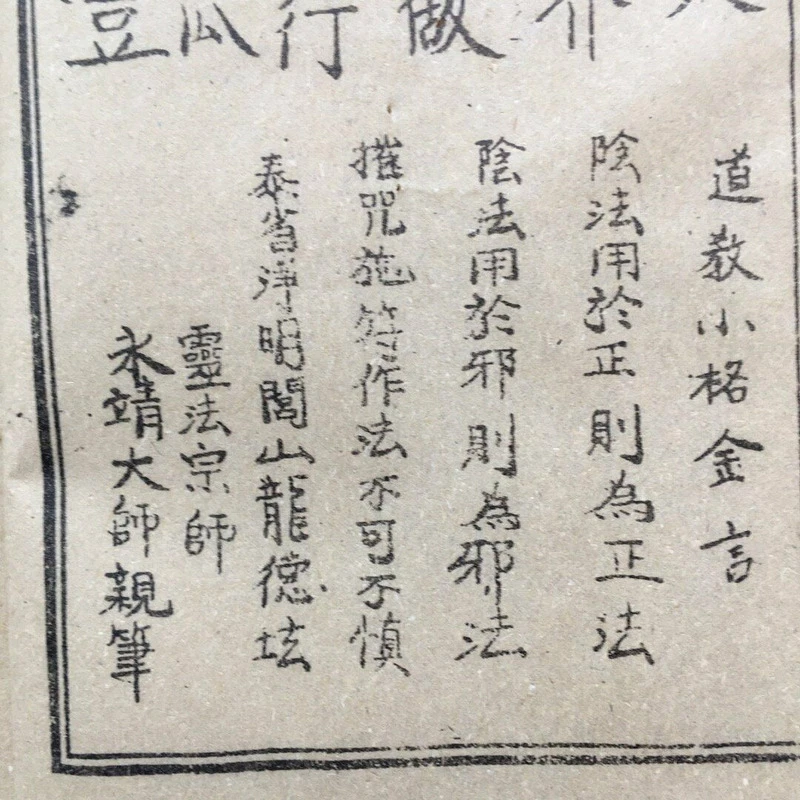 做
行
道教小格金言
陰法用於正則為正法
陰法用於邪則為邪法
摧咒施符作法不可不慎
泰省淨明閭山龍德坛
靈法宗師
永靖大師親筆